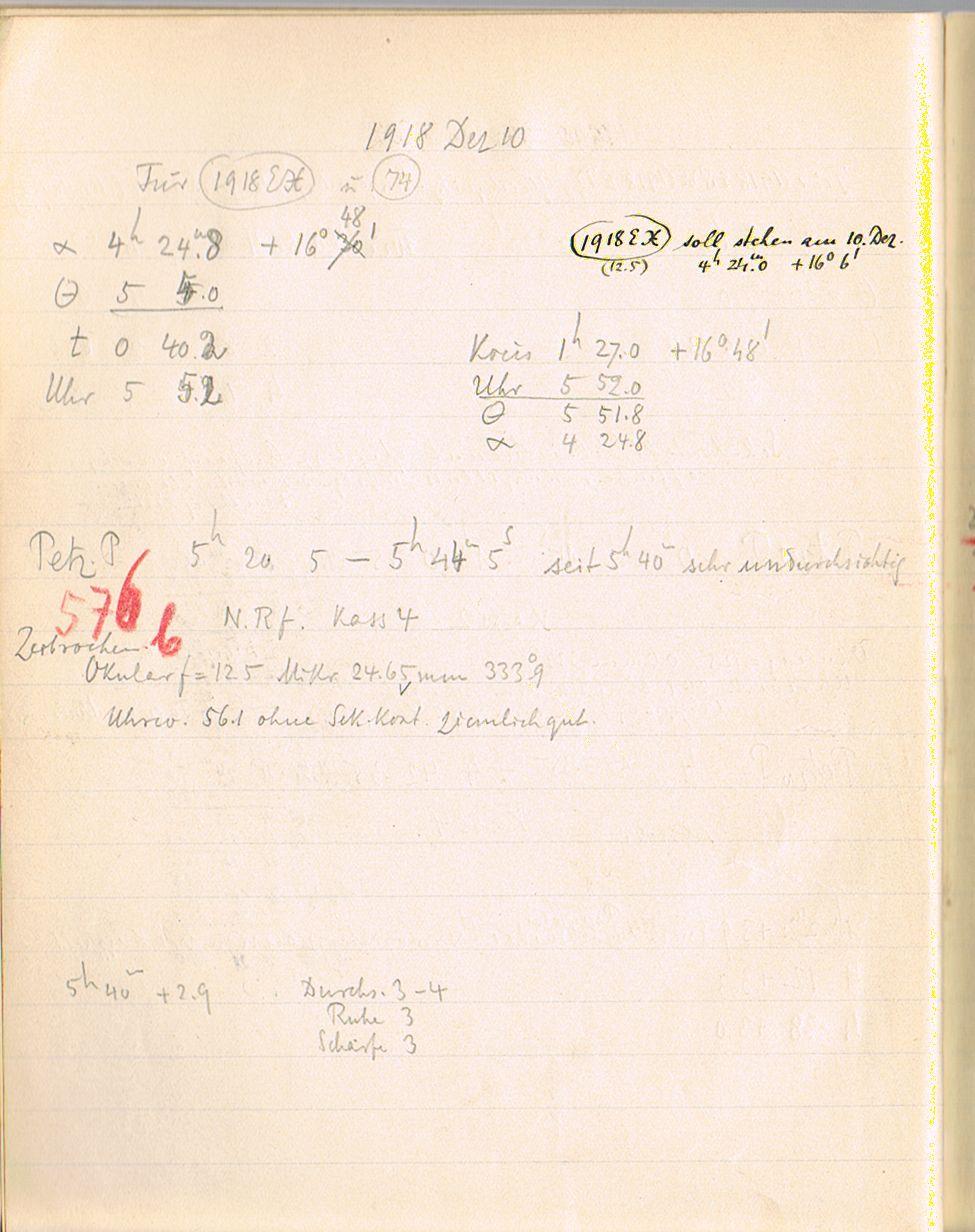 1918 Dez 10
Für 1918 EX u 74
48
α 4h 24m.8 + 16° 30'
1918 EX soll stehen am 10. Dez.
(12.5) 4h 24m.0 +16° 6'
θ 5 5.0
t 0 40.2
Kreis 1h 27.0 +16° 48'
Uhr 5 52
Uhr 5 52.0
θ 5 51.8
α 4 24.8
Petz. P 5h 20 5 – 5h 44m 5s seit 5h 40m sehr undurchsichtig
5766
N. Rf. Kass 4
Zerbrochen.
Okular f = 12.5 Mikr 24.65 mm 333°.9
Uhrw. 56.1 ohne Sek. Kont. ziemlich gut.
5h 40m +2.9 Durchs. 3-4
Ruhe 3
Schärfe 3